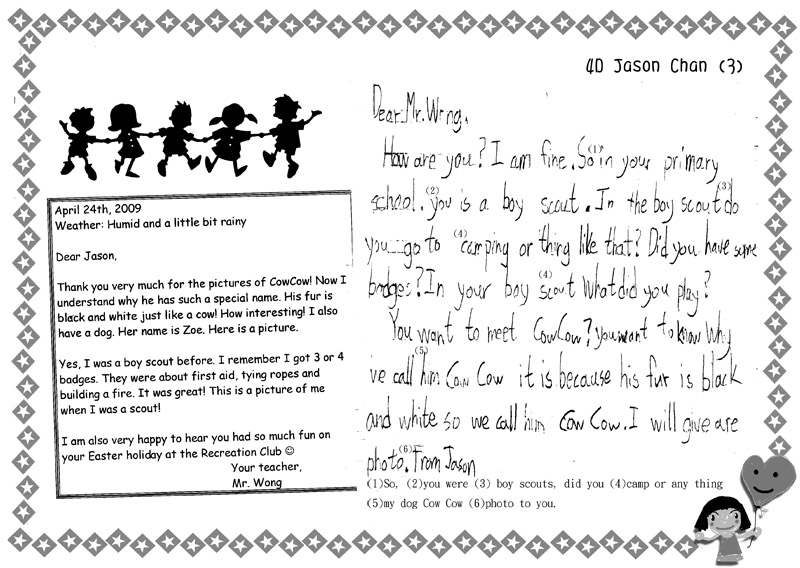 4D Jason Chan (3)
April 24th, 2009
Weather: Humid and a little bit rainy
Dear Jason,
Thank you very much for the pictures of CowCow! Now I
understand why he has such a special name. His fur is
black and white just like a cow! How interesting! I also
have a dog. Her name is Zoe. Here is a picture.
Yes, I was a boy scout before. I remember I got 3 or 4
badges. They were about first aid, tying ropes and
building a fire. It was great! This is a picture of me
when I was a scout!
I am also very happy to hear you had so much fun on
your Easter holiday at the Recreation Club ☺
Your teacher,
Mr. Wong
Dear Mr. Wong,
How are you? I am fine. So (1) in your primary
school. (2) you is a boy scout. In the boy scout (3) do
you go to (4) camping or thing like that? Did you have some
badges? In your boy (4) scout What did you play?
You want to meet CowCow? you want to know Why
i've call (5) him Cow Cow it is because his fur is black
and white so we call him Cow Cow. I will give are
photo. (6) From Jason
(1)So, (2)you were (3) boy scouts, did you (4)camp or any thing
(5)my dog Cow Cow (6)photo to you.